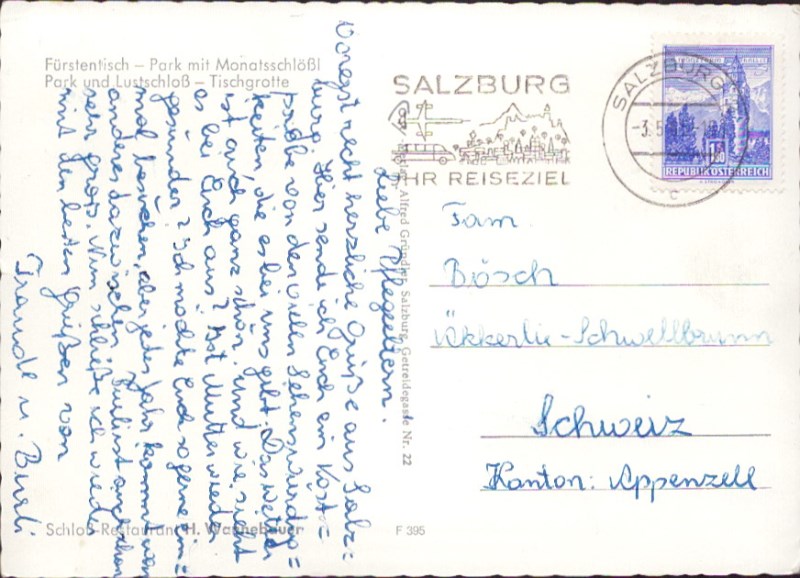 Fürstentisch – Park mit Monatsschlößl
Park und Lustschloß – Tischgrotte
Liebe Pflegeeltern.
Vorerst recht herzliche Grüße aus Salz=
burg. Hier sende ich Euch ein Kost=
probe von den vielen Sehenswürdig=
keiten die es bei uns gibt. Das Wetter
ist auch ganz schön. Und wie sieht
es bei Euch aus? Ist Mutter wieder
gesünder? Ich möchte Euch so gerne ein=
mal besuchen, aber jedes Jahr kommt was
anderes dazwischen.
sehr groß. Nun schließe ich wieder
mit den besten Grüßen von
Traude u. Burli
Schloß-Restaurant H. Wannebauer
F 395
Alfred Gründler, Salzburg, Getreidegasse Nr. 22
SALZBURG
IHR REISEZIEL
SALZBURG
-3.5.
c
1.80
REPUBLIK ÖSTERREICH
Fam.
Bösch
Schwellbrunn
Schweiz
Kanton: Appenzell